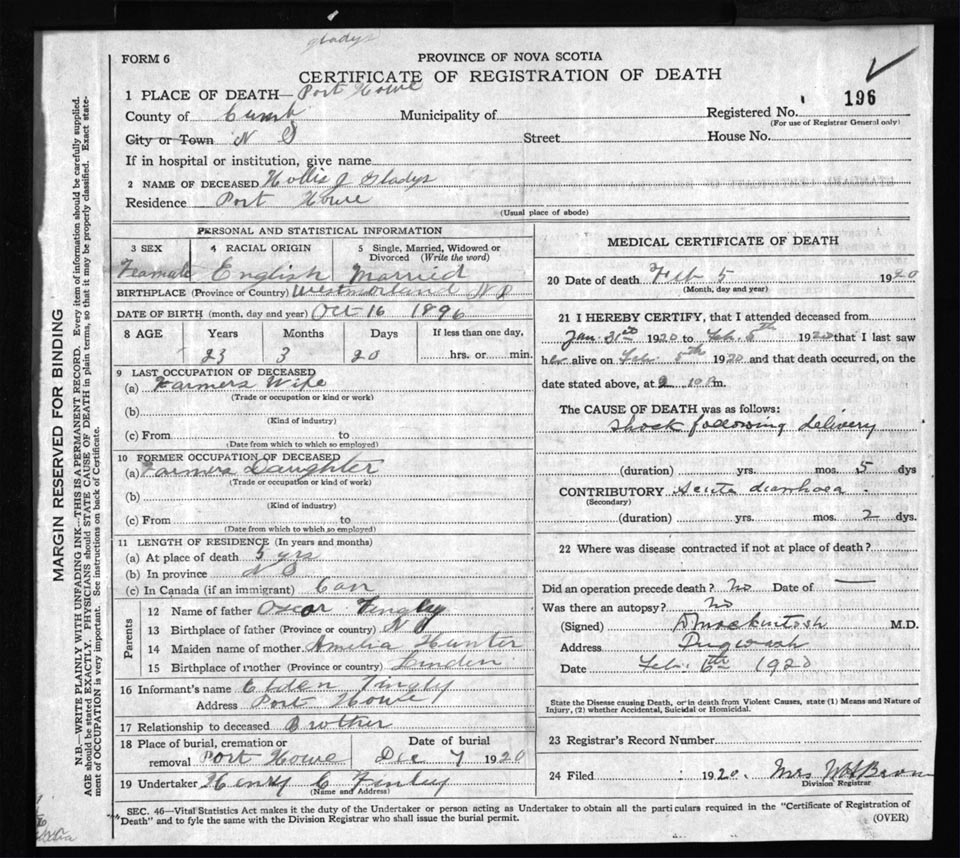 gladys
FORM 6
PROVINCE OF NOVA SCOTIA
CERTIFICATE OF REGISTRATION OF DEATH
1 PLACE OF DEATH— Port Howe
County of Cumb Municipality of Registered No. 196
(For use of Registrar General only)
City or Town N S Street House No.
If in hospital or institution, give name
2 NAME OF DECEASED Hollis J Gladys
Residence Port Howe
(Usual place of abode)
PERSONAL AND STATISTICAL INFORMATION
3 SEX 4 RACIAL ORIGIN 5 Single, Married, Widowed or Divorced (Write the word)
Feamale English Married
BIRTHPLACE (Province or Country) Westmorland N B
DATE OF BIRTH (month, day and year) Oct 16 1896
8 AGE Years Months Days If less than one day,
23 3 20 hrs. or min.
9 LAST OCCUPATION OF DECEASED
(a) Farmers Wife
(Trade or occupation or kind or work)
(b)
(Kind of industry)
(c) From to
(Date from which to which so employed)
10 FORMER OCCUPATION OF DECEASED
(a) Farmers Daughter
(Trade or occupation or kind of work)
(b)
(Kind of industry)
(c) From to
(Date from which to which so employed)
11 LENGTH OF RESIDENCE (In years and months)
(a) At place of death 5 yrs
(b) In province N S
(c) In Canada (if an immigrant) Can
Parents
12 Name of father Oscar Tingly
13 Birthplace of father (Province or country)
14 Maiden name of mother Amelia Hunter
15 Birthplace of mother (Province or country) Linden
16 Informant's name Elden Tingly
Address Port Howe
17 Relationship to deceased Brother
18 Place of burial, cremation or removal Port Howe
Date of burial
Dec 7 1920
19 Undertaker Henry C Finley
(Name and Address)
MEDICAL CERTIFICATE OF DEATH
20 Date of death Feb 5 1920
(Month, day and year)
21 I HEREBY CERTIFY, that I attended deceased from
Jan. 31st 1920 to Feb. 5th 1920 that I last saw
her alive on Feb. 5th 1920 and that death occurred, on the
date stated above, at m.
The CAUSE OF DEATH was as follows:
Shock following delivery
(duration) yrs. mos. 5 dys
CONTRIBUTORY Acute diarrhoea
(Secondary)
(duration) yrs. mos. 2 dys.
22 Where was disease contracted if not at place of death?
Did an operation precede death? No Date of —
Was there an autopsy? No
(Signed) D Mackintosh M.D.
Address Pugwash
Date Feb. 6th 1920
State the Disease causing Death, or in death from Violent Causes, state (1) Means and Nature of
Injury, (2) whether Accidental, Suicidal or Homicidal.
23 Registrar's Record Number
24 Filed 1920. Mrs
Division Registrar
SEC. 46—Vital Statistics Act makes it the duty of the Undertaker or person acting as Undertaker to obtain all the particulars required in the "Certificate of Registration of
Death" and to fyle the same with the Division Registrar who shall issue the burial permit.
(OVER)
MARGIN RESERVED FOR BINDING
N.B.—WRITE PLAINLY WITH UNFADING INK—THIS IS A PERMANENT RECORD. Every item of information should be carefully supplied.
AGE should be stated EXACTLY. PHYSICIANS should STATE CAUSE OF DEATH in plain terms, so that it may be properly classified. Exact state-
ment of OCCUPATION is very important. See instructions on back of Certificate.